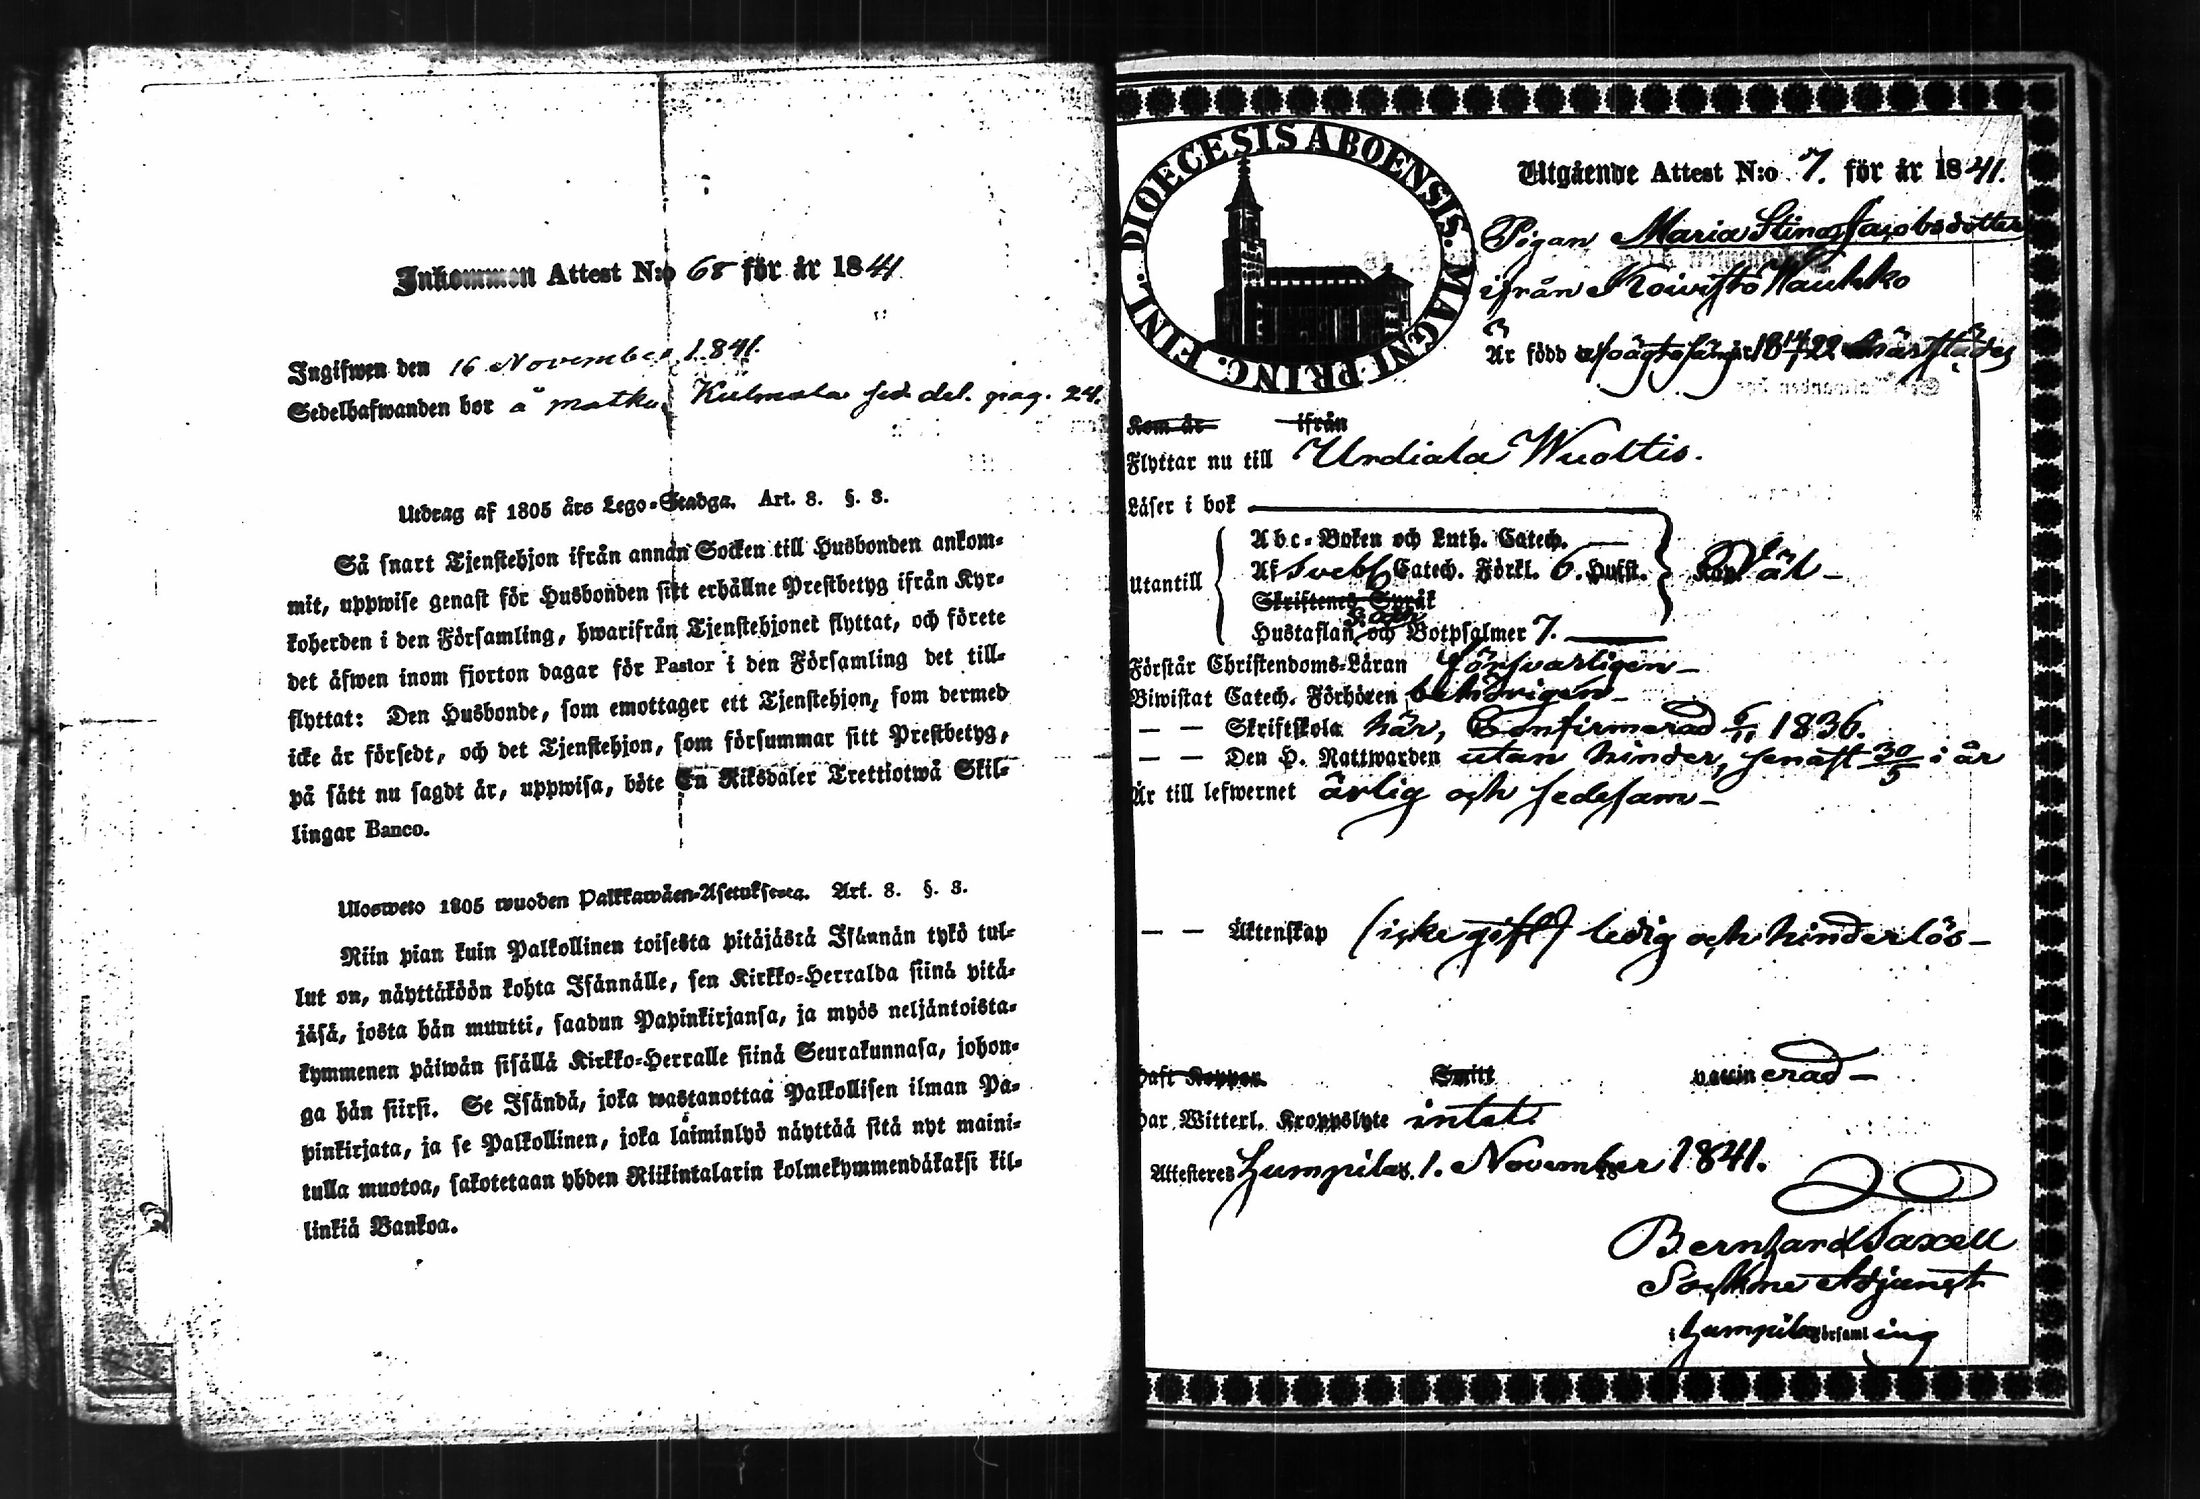 Inkommen Attest N:o 68 för år 1841
Ingifwen den 16 November 1841.
Sedelhafwanden bor å Matku Kulmala sed. del. pag. 24.
Utdrag af 1805 års Lego-Stadga. Art. 8. §. 3.
Så snart Tjenstehjon ifrån annan Socken till Husbonden ankom-
mit, uppwise genast för Husbonden sitt erhållne Prestbetyg ifrån Kyr-
koherden i den Församling, hwarifrån Tjenstehjonet flyttat, och förete
det äfwen inom fjorton dagar för Pastor i den Församling det till-
flyttat: Den Husbonde, som emottager ett Tjenstehjon, som dermed
icke är försedt, och det Tjenstehjon, som försummar sitt Prestbetyg,
på sätt nu sagdt är, uppwisa, böte En Riksdaler Trettiotwå Skil-
lingar Banco.
Ulosweto 1805 wuoden Palkkawäen-Asetuksesta. Art. 8. §. 3.
Niin pian kuin Palkollinen toisesta pitäjästä Isännän tykö tul-
lut on, näyttäköön kohta Isännälle, sen Kirkko-Herralda siinä pitä-
jäsä, josta hän muutti, saadun Papinkirjansa, ja myös neljäntoista-
kymmenen päiwän sisällä Kirkko-Herralle siinä Seurakunnasa, johon-
ga hän siirsi. Se Isändä, joka wastanottaa Palkollisen ilman Pa-
pinkirjata, ja se Palkollinen, joka laiminlyö näyttää sitä nyt maini-
tulla muotoa, sakotetaan yhden Riikintalarin kolmekymmendäkaksi kil-
linkiä Bankoa.
DIOECESIS ABOENSIS. MAGNI PRINC. FINL.
Utgående Attest N:o 7. för år 1841.
Pigan Maria Stina Jacobsdotter
ifrån Koivisto Haukko
Är född af oägta säng år 18 14/7 22 härstädes
Kom år ifrån
Flyttar nu till Urdiala Wuoltis.
Läser i bok
Abc-Boken och Luth. Catech.
Utantill Af Svebi Catech. Förkl. 6. Hufst. Kap. Wäl
Skriftenes Språk
Hustaflan och Botpsalmer 7.
Förstår Christendoms-Läran försvarligen
Biwistat Catech. Förhören behörigen
— — Skriftskola här, Confirmerad 6/11 1836.
— — Den H. Nattwarden utan hinder, senast 30/5 i år
Är till lefwernet ärlig och sedesam
— — Äktenskap (icke gift) ledig och hinderlös
Haft Koppor Smitt vaccinerad
Har Witterl. Kroppslyte intet.
Attesteres Humpila d. 1. November 1841.
Bernhard Saxell
Sockne Adjunct
i Humpila Församling